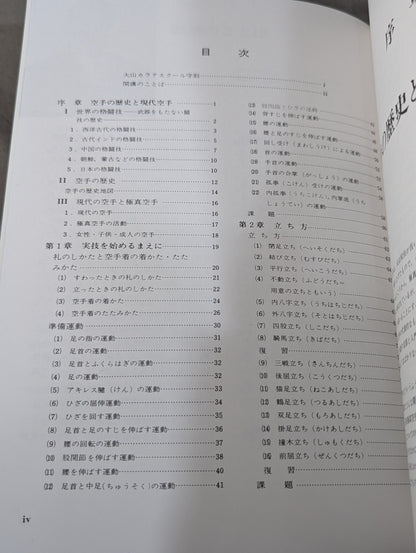 目次
大山カラテスクール守則 i
開講のことば
序章 空手の歴史と現代空手 1
I 世界の格闘技──武器をもたない闘
技の歴史
1. 西洋古代の格闘技
2. 古代インドの格闘技
3. 中国の格闘技
4. 朝鮮、蒙古などの格闘技
5. 日本の格闘技
II 空手の歴史
空手の歴史地図
III 現代の空手と極真空手
1. 現代の空手
2. 極真空手の活動
3. 女性・子供・成人の空手
第1章 実技を始めるまえに 19
礼のしかたと空手着の着かた・たた
みかた 20
(1) すわったときの礼のしかた 21
(2) 立ったときの礼のしかた
(3) 空手着の着かた
(4) 空手着のたたみかた
準備運動 30
(1) 足の指の運動
(2) 足首の運動
(3) 足首とふくらはぎの運動
(4) 足の運動
(5) アキレス腱(けん)の運動
(6) ひざの屈伸運動
(7) ひざを回す運動
(8) 足首と足のすじを伸ばす運動
(9) 腰の回転の運動 37
(10) 股関節を伸ばす運動 38
(11) 腰を伸ばす運動 40
(12) 足首と中足(ちゅうそく)の運動 41
(13) 股関節とひざの運動
(14) 背すじを伸ばす運動
(15) 腰の運動
(16) 腰と足のすじを伸ばす運動
(17) 回し受け(まわしうけ)による運動
(18) 首の運動
(19) 手首の運動
(20) 手首の合掌(がっしょう)の運動
(21) 孤拳(こけん)受けの運動
(22) 内孤拳(うちこけん)内掌底(うち
しょうてい)の運動
課題
第2章 立ち方
立ち方
(1) 閉足立ち(へいそくだち)
(2) 結び立ち(むすびだち)
(3) 平行立ち(へいこうだち)
(4) 不動立ち(ふどうだち=
用意の立ちともいう)
(5) 内八字立ち(うちはちじだち)
(6) 外八字立ち(そとはちじだち)
(7) 四股立ち(しこだち)
(8) 騎馬立ち(きばだち)
復習
(9) 三戦立ち(さんちんだち)
(10) 後屈立ち(こうくつだち)
(11) 猫足立ち(ねこあしだち)
(12) 鶴足立ち(つるあしだち)
(13) 双足立ち(もろあしだち)
(14) 掛足立ち(かけあしだち)
(15) 撞木立ち(しゅもくだち)
(16) 前屈立ち(ぜんくつだち)
復習
課題
iv
序
の歴史と